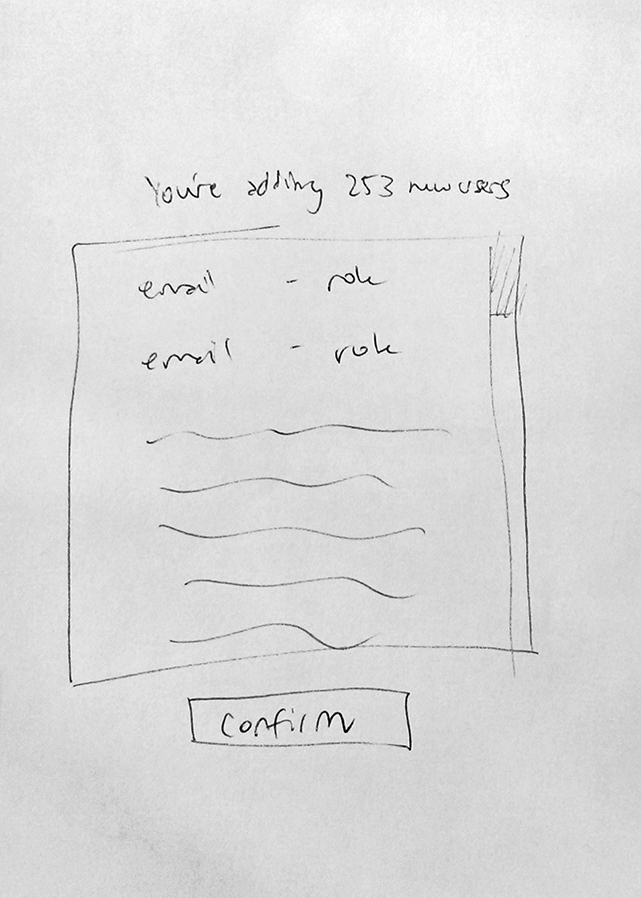 You're adding 253 new users
email - role
email - role
Confirm